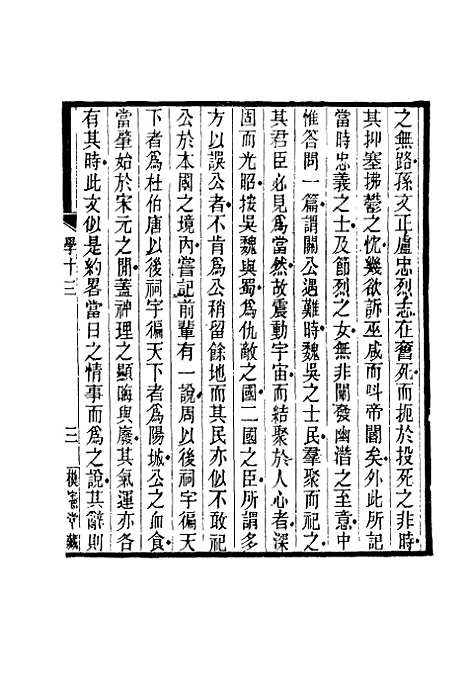 之無路孫文正盧忠烈志在奮死而扼於投死之非時
其抑塞拂鬱之忱幾欲訴巫咸而呌帝閽矣外此所記
當時忠義之士及節烈之女無非闡發幽潛之至意中
惟答問一篇謂關公遇難時魏吳之士民羣聚而祀之
其君臣必見爲當然故震動宇宙而結聚於人心者深
固而光昭按吳魏與蜀爲仇敵之國二國之臣所謂多
方以誤公者不肯爲公稍留餘地而其民亦似不敢祀
公於本國之境內嘗記前輩有一說周以後祠宇徧天
下者爲杜伯唐以後祠宇徧天下者爲陽城公之血食
當肇始於宋元之閒蓋神理之顯晦與廢其氣運亦各
有其時此文似是約畧當日之情事而爲之說其辭則
學十三
三